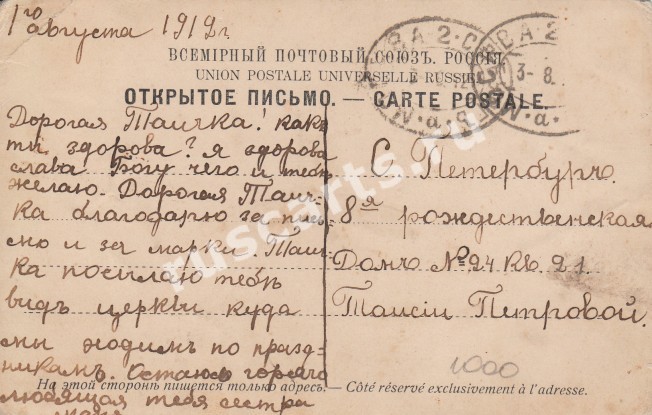 1го августа 1912г.
ВСЕМІРНЫЙ ПОЧТОВЫЙ СОЮЗЪ. РОССІЯ.
UNION POSTALE UNIVERSELLE RUSSIE
ОТКРЫТОЕ ПИСЬМО. — CARTE POSTALE.
Дорогая Таичка! какъ
ты здорова? я здорова
слава Богу чего и тебѣ
желаю. Дорогая Таич-
ка благодарю за пись-
мо и за марки. Таич-
ка посылаю тебѣ
видъ церкви куда
мы ходимъ по празд-
никамъ. Остаюсь горячо
любящая тебя сестра
С. Петербургъ.
8я рождественская
Домъ № 24 кв. 21.
Таисіи Петровой.
1000
На этой сторонѣ пишется только адресъ. — Côté réservé exclusivement à l'adresse.
ruscarts.ru